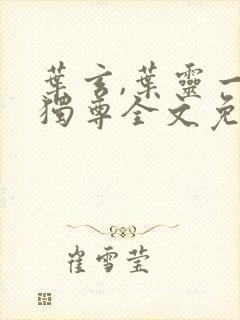 葉玄,葉靈一
獨尊全文免
崔雪莹